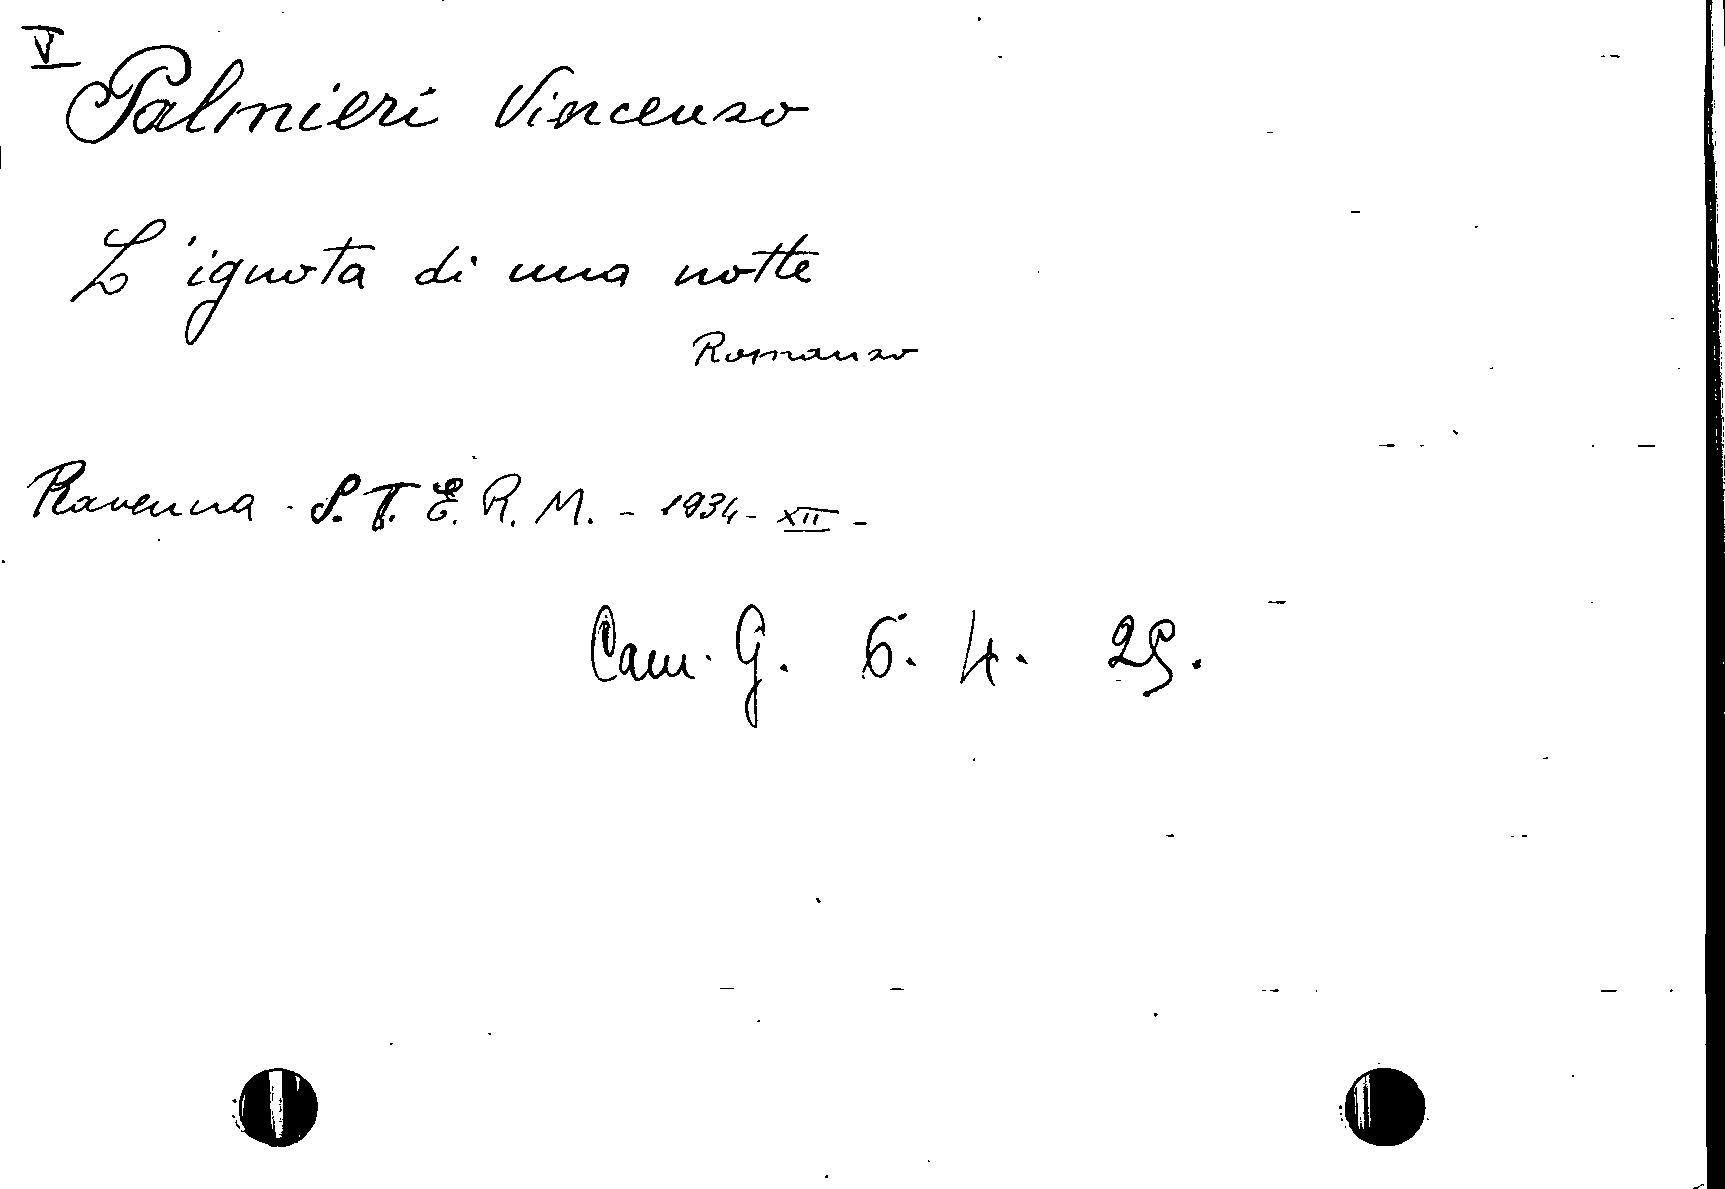 V
Palmieri Vincenzo
L'ignota di una notte
Romanzo
Ravenna - S.T.E.R.M. - 1934 - XII -
Cam. G. 6. 4. 29.